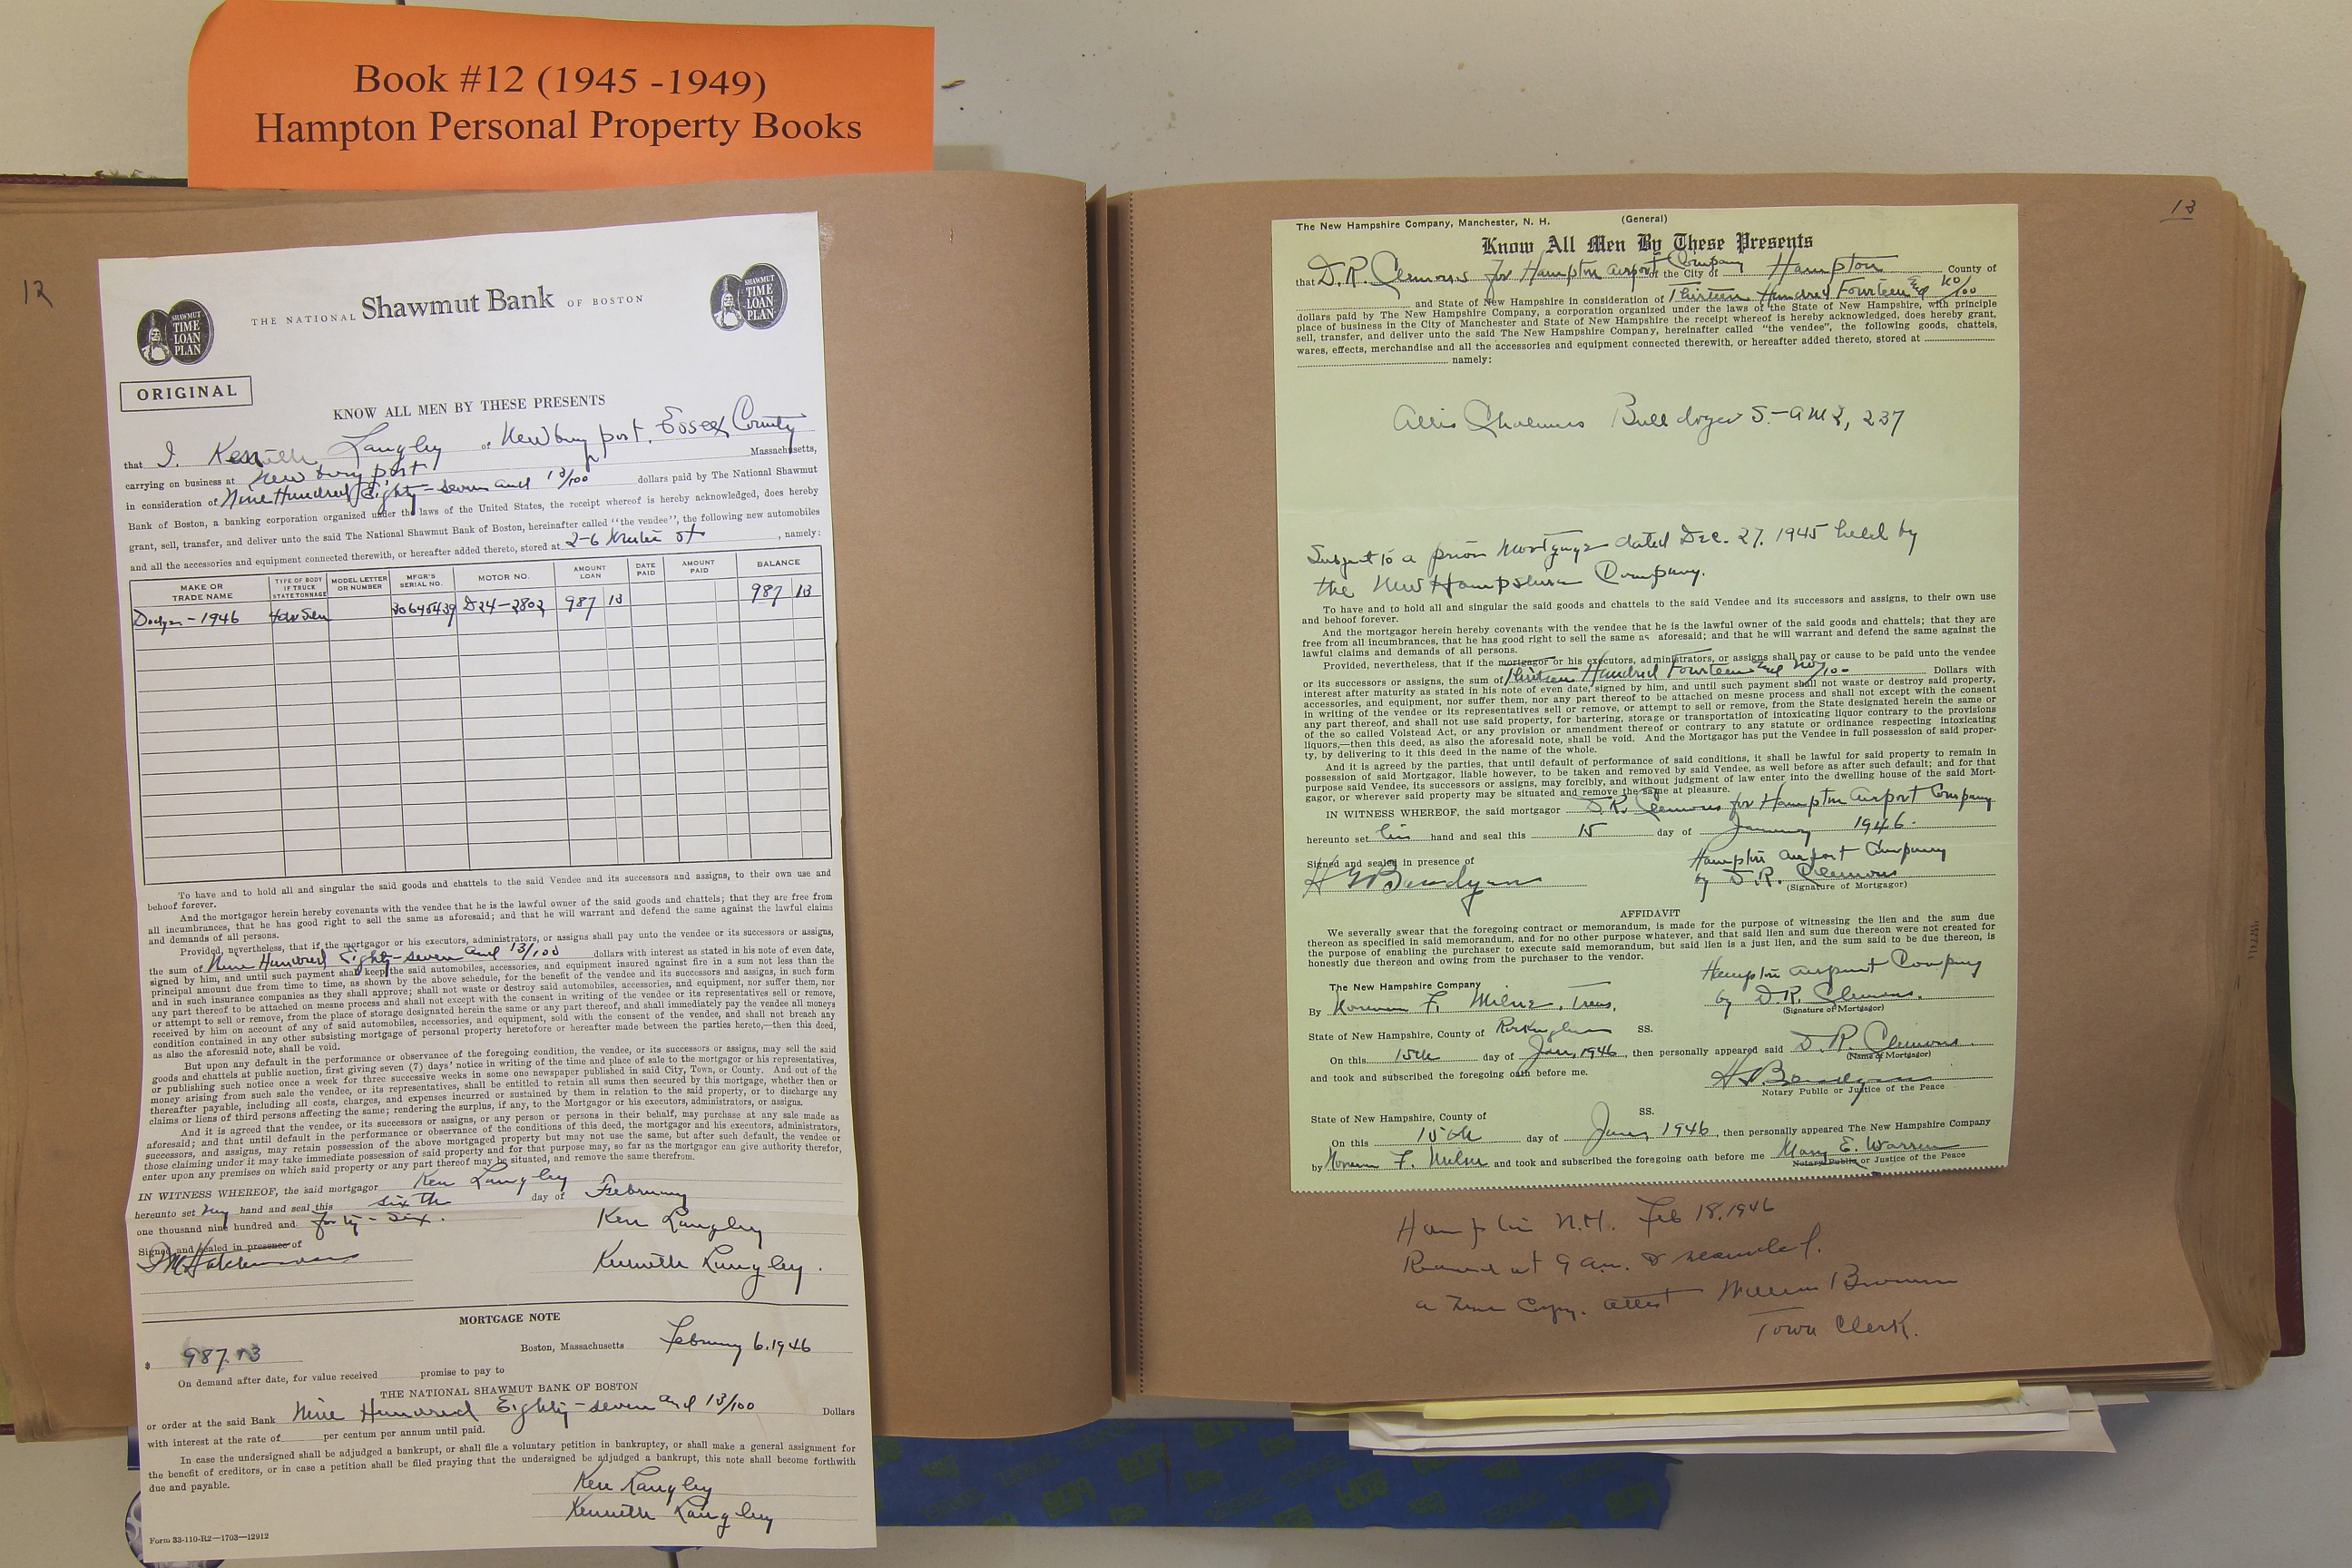 Book #12 (1945 -1949)
Hampton Personal Property Books
12
THE NATIONAL Shawmut Bank OF BOSTON
SHAWMUT TIME LOAN PLAN
SHAWMUT TIME LOAN PLAN
ORIGINAL
KNOW ALL MEN BY THESE PRESENTS
that I. Kenneth Langley of Newburyport, Essex County
Massachusetts,
carrying on business at Newburyport
in consideration of Nine Hundred Eighty-seven and 13/100 dollars paid by The National Shawmut
Bank of Boston, a banking corporation organized under the laws of the United States, the receipt whereof is hereby acknowledged, does hereby
grant, sell, transfer, and deliver unto the said The National Shawmut Bank of Boston, hereinafter called "the vendee", the following new automobiles
and all the accessories and equipment connected therewith, or hereafter added thereto, stored at 2-6 St , namely:
MAKE OR TRADE NAME TYPE OF BODY IF TRUCK STATE TONNAGE MODEL LETTER OR NUMBER MFGR'S SERIAL NO. MOTOR NO. AMOUNT LOAN DATE PAID AMOUNT PAID BALANCE
Dodge - 1946 30645439 D24-2802 987 13 987 13
To have and to hold all and singular the said goods and chattels to the said Vendee and its successors and assigns, to their own use and
behoof forever.
And the mortgagor herein hereby covenants with the vendee that he is the lawful owner of the said goods and chattels; that they are free from
all incumbrances, that he has good right to sell the same as aforesaid; and that he will warrant and defend the same against the lawful claims
and demands of all persons.
Provided, nevertheless, that if the mortgagor or his executors, administrators, or assigns shall pay unto the vendee or its successors or assigns,
the sum of Nine Hundred Eighty-seven and 13/100 dollars with interest as stated in his note of even date,
signed by him, and until such payment shall keep the said automobiles, accessories, and equipment insured against fire in a sum not less than the
principal amount due from time to time, as shown by the above schedule, for the benefit of the vendee and its successors and assigns, in such form
and in such insurance companies as they shall approve; shall not waste or destroy said automobiles, accessories, and equipment, nor suffer them, nor
any part thereof to be attached on mesne process and shall not except with the consent in writing of the vendee or its representatives sell or remove,
or attempt to sell or remove, from the place of storage designated herein the same or any part thereof, and shall immediately pay the vendee all moneys
received by him on account of any of said automobiles, accessories, and equipment, sold with the consent of the vendee, and shall not breach any
condition contained in any other subsisting mortgage of personal property heretofore or hereafter made between the parties hereto,—then this deed,
as also the aforesaid note, shall be void.
But upon any default in the performance or observance of the foregoing condition, the vendee, or its successors or assigns, may sell the said
goods and chattels at public auction, first giving seven (7) days' notice in writing of the time and place of sale to the mortgagor or his representatives,
or publishing such notice once a week for three successive weeks in some one newspaper published in said City, Town, or County. And out of the
money arising from such sale the vendee, or its representatives, shall be entitled to retain all sums then secured by this mortgage, whether then or
thereafter payable, including all costs, charges, and expenses incurred or sustained by them in relation to the said property, or to discharge any
claims or liens of third persons affecting the same; rendering the surplus, if any, to the Mortgagor or his executors, administrators, or assigns.
And it is agreed that the vendee, or its successors or assigns, or any person or persons in their behalf, may purchase at any sale made as
aforesaid; and that until default in the performance or observance of the conditions of this deed, the mortgagor and his executors, administrators,
successors, and assigns, may retain possession of the above mortgaged property but may not use the same, but after such default, the vendee or
those claiming under it may take immediate possession of said property and for that purpose may, so far as the mortgagor can give authority therefor,
enter upon any premises on which said property or any part thereof may be situated, and remove the same therefrom.
IN WITNESS WHEREOF, the said mortgagor Ken Langley
hereunto set my hand and seal this sixth day of February
one thousand nine hundred and forty-six.
Ken Langley
Signed and sealed in presence of
Kenneth Langley.
MORTGAGE NOTE
$ 987.13 Boston, Massachusetts February 6, 1946
On demand after date, for value received promise to pay to
THE NATIONAL SHAWMUT BANK OF BOSTON
or order at the said Bank Nine Hundred Eighty-seven and 13/100 Dollars
with interest at the rate of per centum per annum until paid.
In case the undersigned shall be adjudged a bankrupt, or shall file a voluntary petition in bankruptcy, or shall make a general assignment for
the benefit of creditors, or in case a petition shall be filed praying that the undersigned be adjudged a bankrupt, this note shall become forthwith
due and payable.
Ken Langley
Kenneth Langley
Form 33-110-R2—1703—12912
13
The New Hampshire Company, Manchester, N. H. (General)
Know All Men By These Presents
that D.R. Clemons for Hampton Airport Company of the City of Hampton County of
and State of New Hampshire in consideration of Thirteen Hundred Fourteen and no/100
dollars paid by The New Hampshire Company, a corporation organized under the laws of the State of New Hampshire, with principle
place of business in the City of Manchester and State of New Hampshire the receipt whereof is hereby acknowledged, does hereby grant,
sell, transfer, and deliver unto the said The New Hampshire Company, hereinafter called "the vendee", the following goods, chattels,
wares, effects, merchandise and all the accessories and equipment connected therewith, or hereafter added thereto, stored at
namely:
Allis Chalmers Bulldozer S-AM2, 237
Subject to a prior Mortgage dated Dec. 27. 1945 held by
the New Hampshire Company.
To have and to hold all and singular the said goods and chattels to the said Vendee and its successors and assigns, to their own use
and behoof forever.
And the mortgagor herein hereby covenants with the vendee that he is the lawful owner of the said goods and chattels; that they are
free from all incumbrances, that he has good right to sell the same as aforesaid; and that he will warrant and defend the same against the
lawful claims and demands of all persons.
Provided, nevertheless, that if the mortgagor or his executors, administrators, or assigns shall pay or cause to be paid unto the vendee
or its successors or assigns, the sum of Thirteen Hundred Fourteen and no/100 Dollars with
interest after maturity as stated in his note of even date, signed by him, and until such payment shall not waste or destroy said property,
accessories, and equipment, nor suffer them, nor any part thereof to be attached on mesne process and shall not except with the consent
in writing of the vendee or its representatives sell or remove, or attempt to sell or remove, from the State designated herein the same or
any part thereof, and shall not use said property, for bartering, storage or transportation of intoxicating liquor contrary to the provisions
of the so called Volstead Act, or any provision or amendment thereof or contrary to any statute or ordinance respecting intoxicating
liquors,—then this deed, as also the aforesaid note, shall be void. And the Mortgagor has put the Vendee in full possession of said proper-
ty, by delivering to it this deed in the name of the whole.
And it is agreed by the parties, that until default of performance of said conditions, it shall be lawful for said property to remain in
possession of said Mortgagor, liable however, to be taken and removed by said Vendee, as well before as after such default; and for that
purpose said Vendee, its successors or assigns, may forcibly, and without judgment of law enter into the dwelling house of the said Mort-
gagor, or wherever said property may be situated and remove the same at pleasure.
IN WITNESS WHEREOF, the said mortgagor D.R. Clemons for Hampton Airport Company
hereunto set his hand and seal this 15 day of January 1946.
Signed and sealed in presence of
Hampton Airport Company
by D.R. Clemons
(Signature of Mortgagor)
AFFIDAVIT
We severally swear that the foregoing contract or memorandum, is made for the purpose of witnessing the lien and the sum due
thereon as specified in said memorandum, and for no other purpose whatever, and that said lien and sum due thereon were not created for
the purpose of enabling the purchaser to execute said memorandum, but said lien is a just lien, and the sum said to be due thereon, is
honestly due thereon and owing from the purchaser to the vendor.
Hampton Airport Company
The New Hampshire Company
by D.R. Clemons.
(Signature of Mortgagor)
By Norman F. Milne, Treas.
State of New Hampshire, County of Rockingham SS.
On this 15th day of Jan, 1946, then personally appeared said D. R. Clemons.
(Name of Mortgagor)
and took and subscribed the foregoing oath before me.
Notary Public or Justice of the Peace
State of New Hampshire, County of SS.
On this 15th day of Jan, 1946, then personally appeared The New Hampshire Company
by Norman F. Milne and took and subscribed the foregoing oath before me Mary E. Warren
Notary Public or Justice of the Peace
Hampton N.H. Feb 18, 1946
Received at 9 a.m. & recorded.
a True Copy. Attest William Brown
Town Clerk.